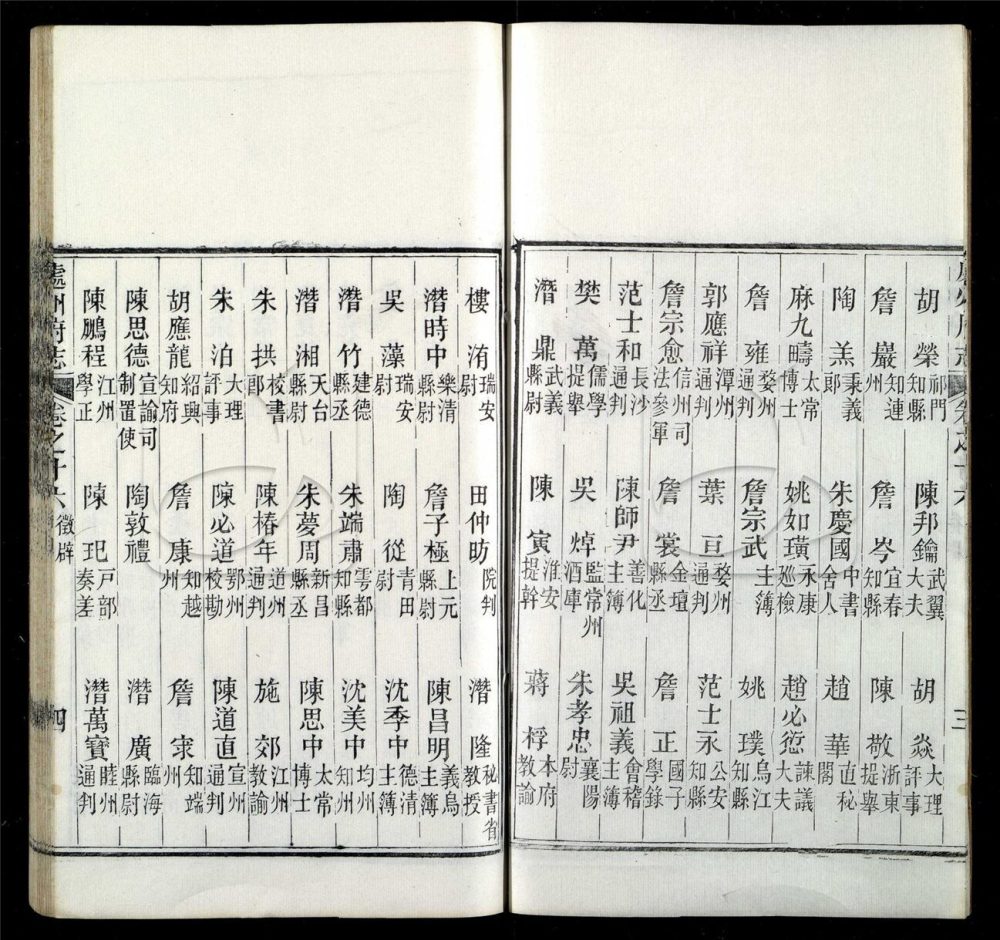 胡榮祁門知縣 陳邦鑰武翼大夫 胡焱大理評事
詹巖知連州 詹岑宜春知縣 陳敬浙東提舉
陶羔秉義郎 朱慶國中書舍人 趙華直秘閣
麻九疇太常博士 姚如璜永康廵檢 趙必愆諫議大夫
詹雍婺州通判 詹宗武主簿 姚璞烏江知縣
郭應祥潭州通判 葉亘婺州通判 范士永公安知縣
詹宗愈信州司法參軍 詹裳金壇縣丞 詹正國子學錄
范士和長沙通判 陳師尹善化主簿 吳祖義會稽主簿
樊萬儒學提舉 吳焯監常州酒庫 朱孝忠襄陽尉
潛鼎武義縣尉 陳寅淮安提幹 蔣桴本府教諭
樓洧瑞安尉 田仲昉院判 潛隆秘書省教授
潛時中樂清縣尉 詹子極上元縣尉 陳昌明義烏主簿
吳藻瑞安尉 陶從青田尉 沈季中德清主簿
潛竹建德縣丞 朱端肅雩都知縣 沈美中知均州
潛湘天台縣尉 朱夢周新昌縣丞 陳思中太常博士
朱拱校書郎 陳椿年道州通判 施郊江州教諭
朱泊大理評事 陳必道鄂州校勘 陳道直宣州通判
胡應龍紹興知府 詹康知越州 詹宲知端州
陳思德宣諭司制置使 陶敦禮 潛廣臨海縣尉
陳鵬程江州學正 陳玘戶部奏差 潛萬寶睦州通判
處州府志 卷之十六 徵辟 四